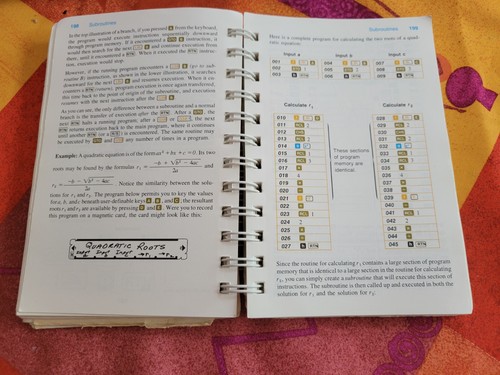 198 Subroutines
In the top illustration of a branch, if you pressed A from the keyboard,
the program would execute instructions sequentially downward
through program memory. If it encountered a GTO B instruction, it
would then search for the next B and continue execution from
there, until it encountered a RTN. When it executed the RTN instruc-
tion, execution would stop.
However, if the running program encounters a B (go to sub-
routine B) instruction, as shown in the lower illustration, it searches
downward for the next B and resumes execution. When it en-
counters a RTN (return), program execution is once again transferred,
this time back to the point of origin of the subroutine, and execution
resumes with the next instruction after the B.
As you can see, the only difference between a subroutine and a normal
branch is the transfer of execution after the RTN. After a GTO, the
next RTN halts a running program; after a or, the next
RTN returns execution back to the main program, where it continues
until another RTN (or a R/S) is encountered. The same routine may
be executed by GTO and any number of times in a program.
Example: A quadratic equation is of the form ax² + bx + c = 0. Its two
roots may be found by the formulas r₁ = −b + √b² − 4ac / 2a and
r₂ = −b − √b² − 4ac / 2a. Notice the similarity between the solu-
tions for r₁ and r₂. The program below permits you to key the values
for a, b, and c beneath user-definable keys A, B, and C; the resultant
roots r₁ and r₂ are available by pressing D and E. Were you to record
this program on a magnetic card, the card might look like this:
QUADRATIC ROOTS
Input Input Input
Subroutines 199
Here is a complete program for calculating the two roots of a quad-
ratic equation:
Input a Input b Input c
001 004 007
002 005 008
003 RTN 006 RTN 009 RTN
Calculate r₁ Calculate r₂
010 028
011 029
012 030
013 031
014 032
015 033
016 034
017 035
018 4 036 4
019 037
020 038
021 039
022 040
023 041
024 2 042 2
025 043
026 044
027 RTN 045 RTN
These sections
of program
memory are
identical.
Since the routine for calculating r₁ contains a large section of program
memory that is identical to a large section in the routine for calculating
r₂, you can simply create a subroutine that will execute this section of
instructions. The subroutine is then called up and executed in both the
solution for r₁ and the solution for r₂: